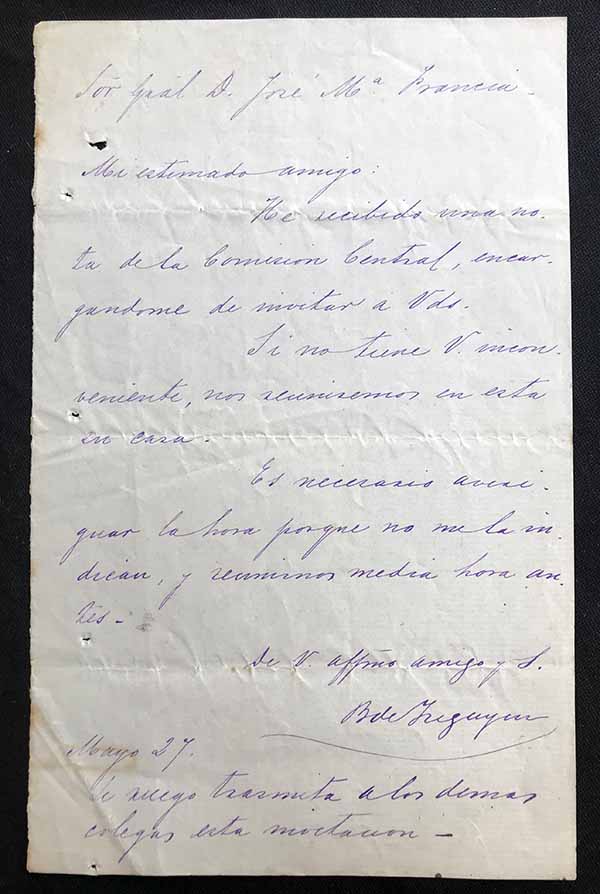 Sor Gral D. José Mª Francia.
Mi estimado amigo:
He recibido una no-
ta de la Comision Central, encar-
gandome de invitar a Vds.
Si no tiene V. incon-
veniente, nos reuniremos en esta
su casa.
Es necesario averi-
guar la hora porque no me la in-
dican, y reunirnos media hora an-
tes -
de V. affmo amigo y S.
B de Irigoyen
Mayo 27.
Le ruego trasmita a los demas
colegas esta invitacion -